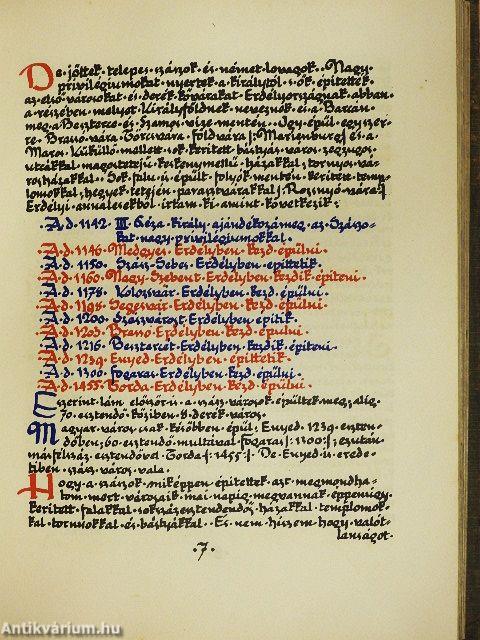 De jöttek telepes szászok és német lovagok. Nagy
privilégiumokat nyertek a királytól s ők építették
az első városokat és derék kővárakat Erdélyországnak abban
a részében melyet Királyföldnek neveznők és a Barcán
meg a Beszterce és Szamos vize mentén. Így épül egyszer=
re Brassó vára Törcvára Földvára /: Marienburg :/ és a
Maros Küküllő mellett sok kerített bástyás város zegzugos
utcákkal magostetejű keskenymellű házakkal, tornyos vá=
rosházakkal. Sok falu is épült folyók mentén kerített temp=
lomokkal, hegyek tetején parasztvárakkal /: Rosnyó vára :/
Erdélyi annálesekből írkam ki amint következik:
A. d. 1142 III. Géza király ajándékozá meg az Szászo=
kat nagy privilégiumokkal.
A. d. 1146 Medgyes Erdélyben kezd épülni.
A. d. 1150 Szász Sebes Erdélyben építtetik.
A. d. 1160 Nagy Szebent Erdélyben kezdik építeni
A. d. 1178 Kolozsvár Erdélyben kezd épülni.
A. d. 1198 Segesvár Erdélyben kezd épülni.
A. d. 1200 Szászvárost Erdélyben építik.
A. d. 1203 Brassó Erdélyben kezd épülni.
A. d. 1216 Besztercét Erdélyben kezdik építeni
A. d. 1239 Enyed Erdélyben építtetik.
A. d. 1300 Fogaras Erdélyben kezd épülni.
A. d. 1455 Torda Erdélyben kezd épülni.
Eszerint lám először is a szász városok épültek meg, alig
70 esztendő köziben 8 derék város.
Magyar város csak későbben épül, Enyed 1239 eszten=
dőben, 60 esztendő multával Fogaras /: 1300 :/, ezután
másfélszáz esztendővel Torda /: 1455 :/. De Enyed is erede=
tiben szász város vala.
Hogy a szászok miképpen építettek azt megmondha=
tom mert városaik mai napig megvannak éppenúgy
kerített falakkal sokszázesztendős házakkal templomok=
kal tornyokkal és bástyákkal. És nem hiszem hogy valót=
lanságot.
.7.
Antikvárium.hu